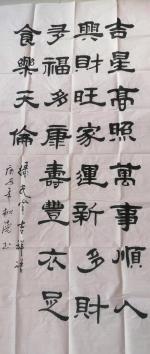 吉星高照萬事順人
興財旺家運新多財
多福多康壽豐衣足
食樂天倫